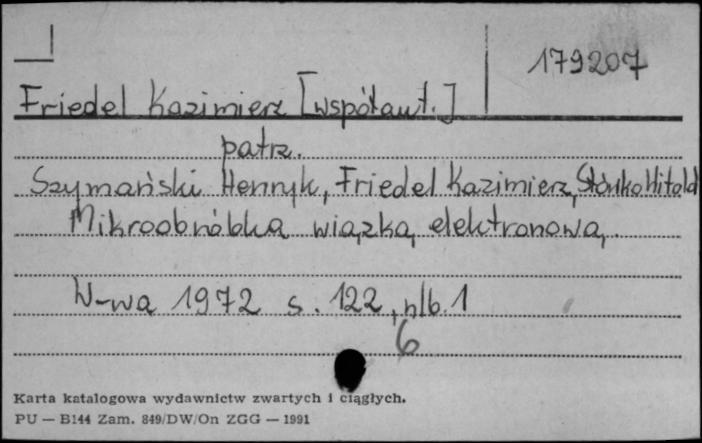 179207
Friedel Kazimierz [współaut.]
patrz.
Szymański Henryk, Friedel Kazimierz, Słówko Witold
Mikroobróbka wiązką elektronową.
W-wa 1972 s. 122, nlb. 1
6
Karta katalogowa wydawnictw zwartych i ciągłych.
PU — B144 Zam. 849/DW/On ZGG — 1991